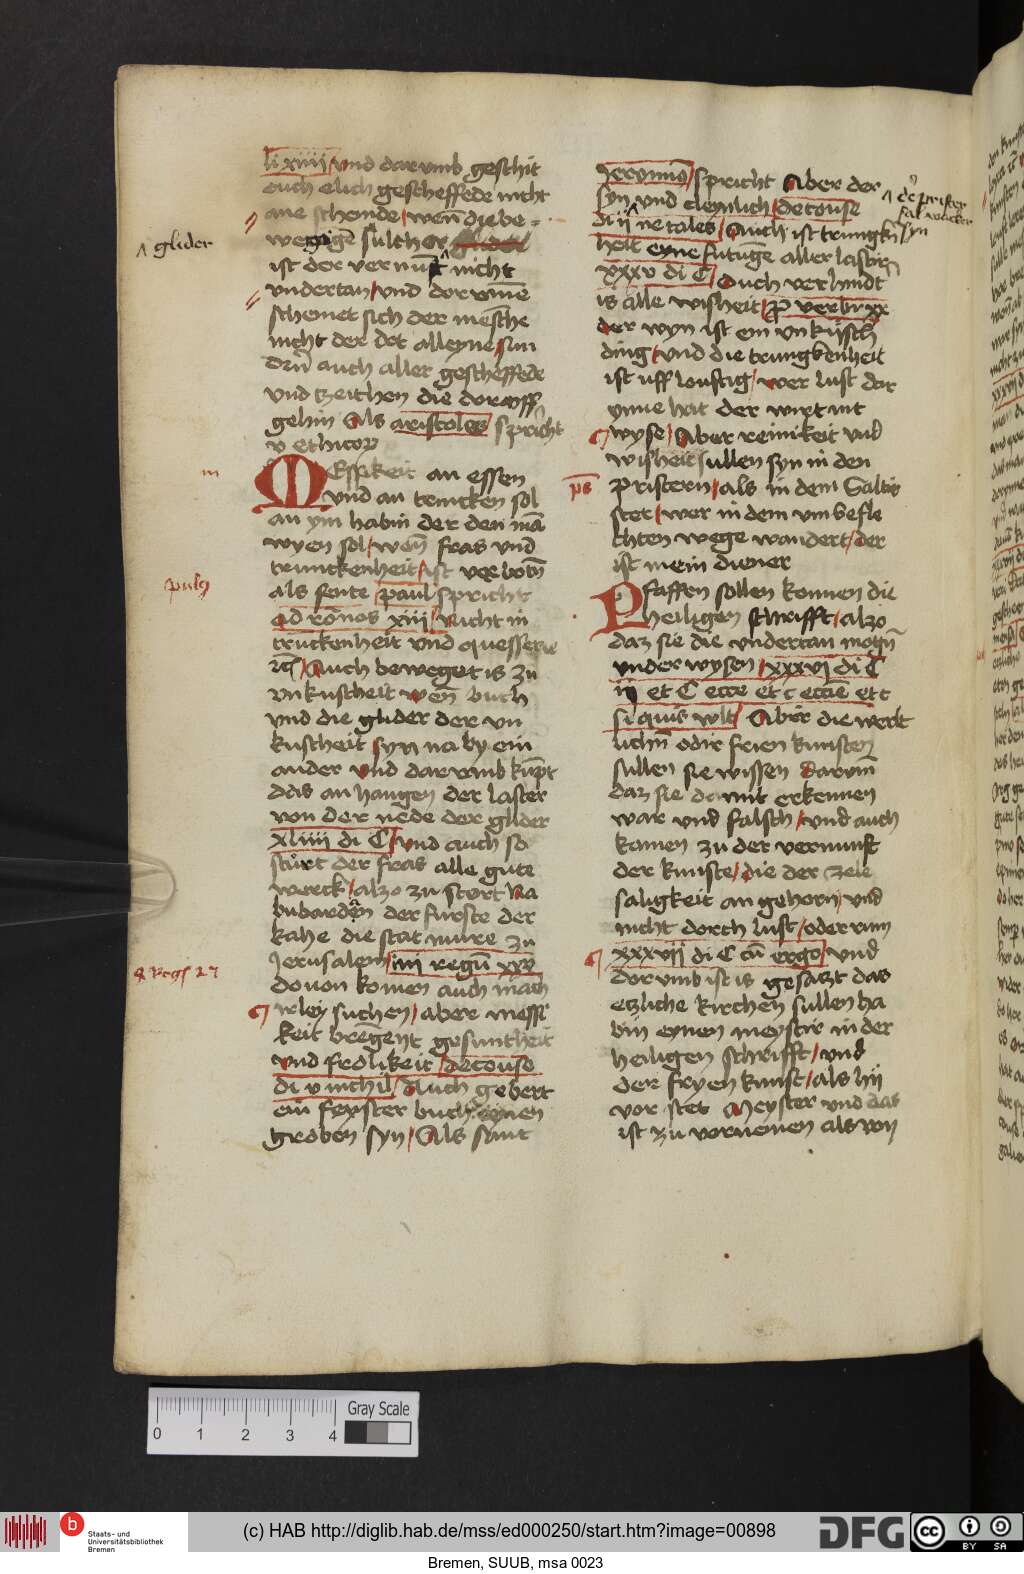 li xiiii vnd dar vmb geschit
euch elich gescheffede nicht
ane schemde / wen̄ die be
wegigē sulcher
glider
ist der vernūft nicht
vndertan / vnd dor vmē
schemet sich der mēsche
nicht der dot alleyne sun
dern̄ auch aller gescheffede
vnd tzeithen die dor vff
gehin Als aristoles spricht
v ethicor
iii
MEssikeit an essen
vnd an trincken sol
an ym habin der den mā
wyen sol / wen̄ fras vnd
trunckenheit / ist verbotn̄
pulꝯ
als sente paul spricht
ad rōnos xiii / Nicht in
trūckenheit vnd quesserie
rc̄ / Auch beweget is zu
vnkuscheit wen̄ buch
vnd die glider der vn
kuscheit syn na by ein
ander vnd dar vmb kūpt
das an hangen der laster
von der nede der glider
xliiii di C / vnd auch so
sturt der fras alle gute
werck / alzo zu stort Na
bubardēn der furste der
kahe die stat mure zu
Jerusalem iiii regū xxv
4 Regꝭ 27
douon komen auch mach
irley suchen / aber messi
keit brēgent gesuntheit
vnd frolikeit / de cōuse
di v nichil / Auch gebert
ein feyster buch eynen
groben syn / Als sant
Jeronimꝰ spricht Aber der
de prister
sal wacker
syn
syn vnd cleynlich / de cōuse
di ii ne tales / Auch ist trungkn̄
heit eyne futūge aller lastir
xxxv di C / Ouch verhindt
is alle wisheit / ꝓverbir xx
der wyn ist ein vnkūsch
ding / vnd die trungkenheit
ist uff louftig / wer lust dar
ynne hat der wirt nit
wyse / Aber reinikeit vnd
wisheit sullen syn in den
ps
pristern / als in dem Saltir
stet / wer in dem vmbefle
chten wege wandert / der
ist mein diener
Pfaffen sollen konnen die
heiligen schrifft / alzo
daz sie die vndertan mogn̄
vnder wysen / xxxvi di C
ii et C ecce et c eccīe et c
si quis vult / Aber die werlt
lichn̄ odir frien kunsten
sullen sie wissen darvm̄
daz sie do mit erkennen
war vnd falsch / vnd auch
komen zu der vernunft
der kunste / die der zele
saligkeit an gehorn / vnd
nicht dorch lust / oder rum
xxxvii di C cū ergo / vnd
dor vmb ist is gesatzt das
etzliche kirchen sullen ha
bin eynen meystir in der
heiligen schrifft / vnd
der fryen kunst / als hij
vor stet Meyster vnd das
ist zu vornemen als wij
0 1 2 3 4
Gray Scale
Staats- und
Universitätsbibliothek
Bremen
(c) HAB http://diglib.hab.de/mss/ed000250/start.htm?image=00898
DFG
cc BY SA
Bremen, SUUB, msa 0023